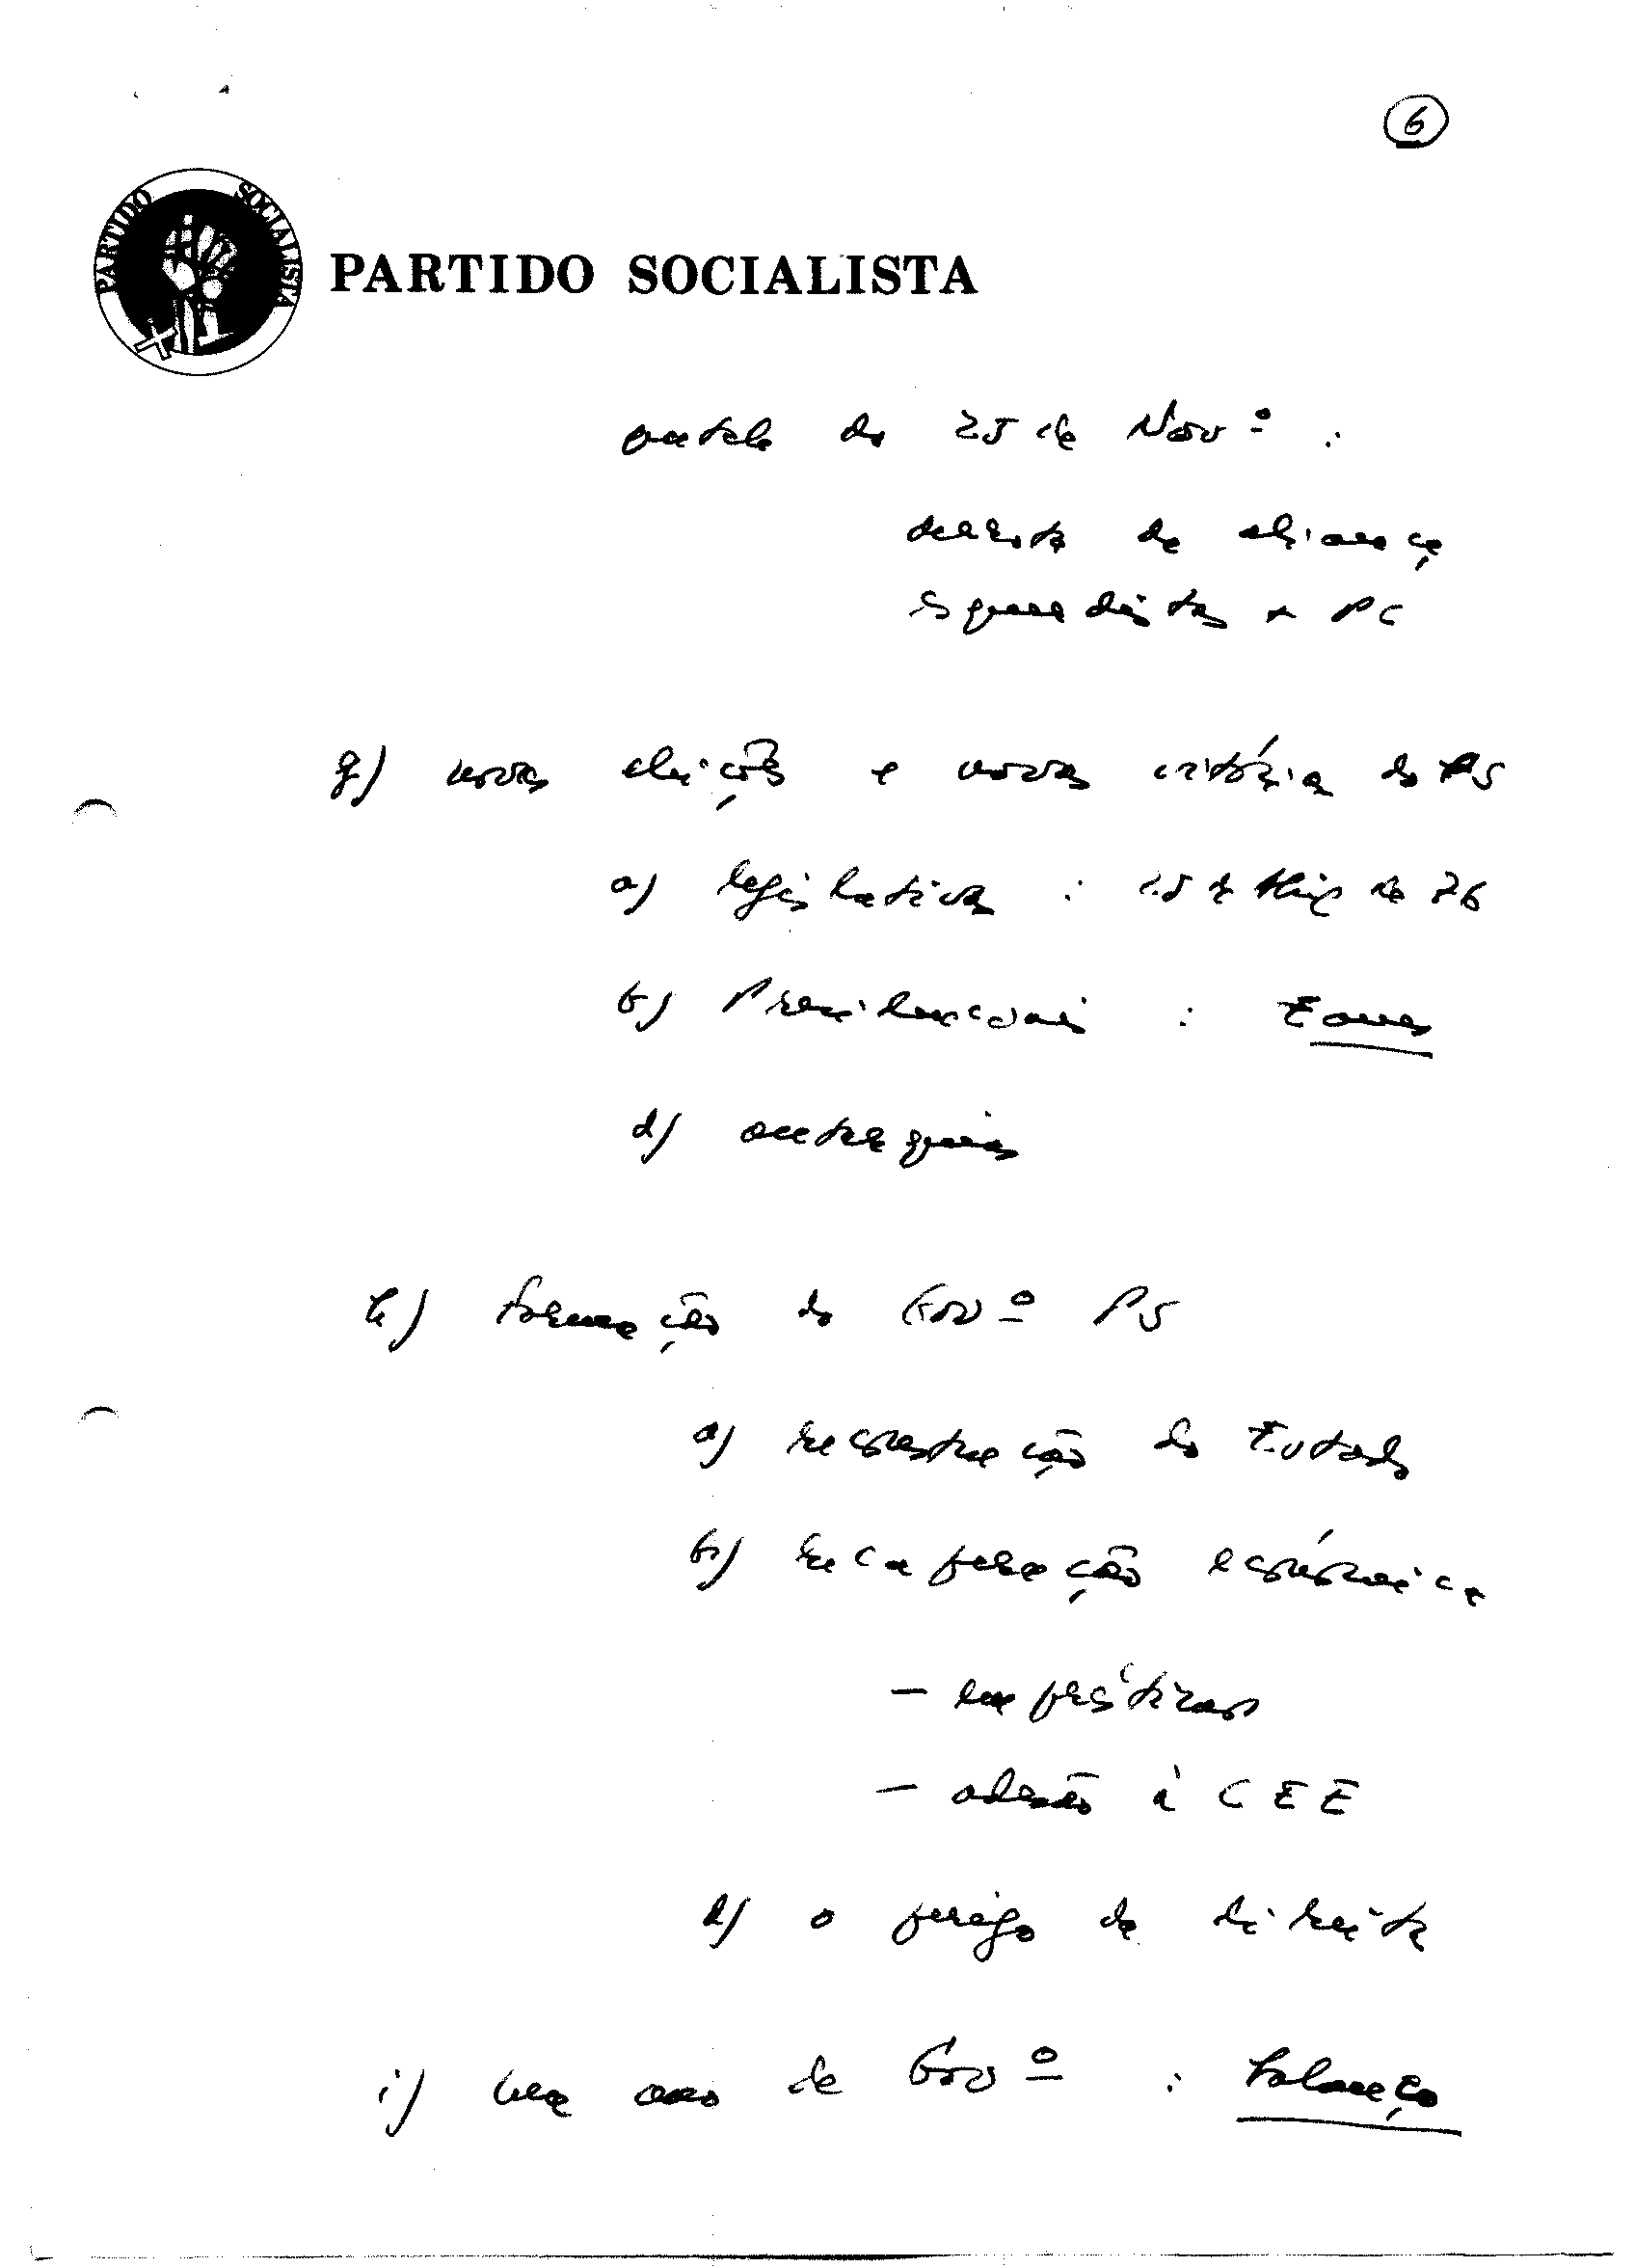 6
PARTIDO SOCIALISTA
PARTIDO SOCIALISTA
do 25 de Novº :
derrota da aliança
esquerdistas + PC
g) novas eleições e novas vitória do PS
a) legislativas : 25 de de 76
b) Presidenciais : Eanes
d) autarquias
h) formação do Govº PS
a) reconstrução do Estado
b) recuperação económica
– empréstimos
– adesão à CEE
d) o perigo da direita
i) um ano de Govº : balanço